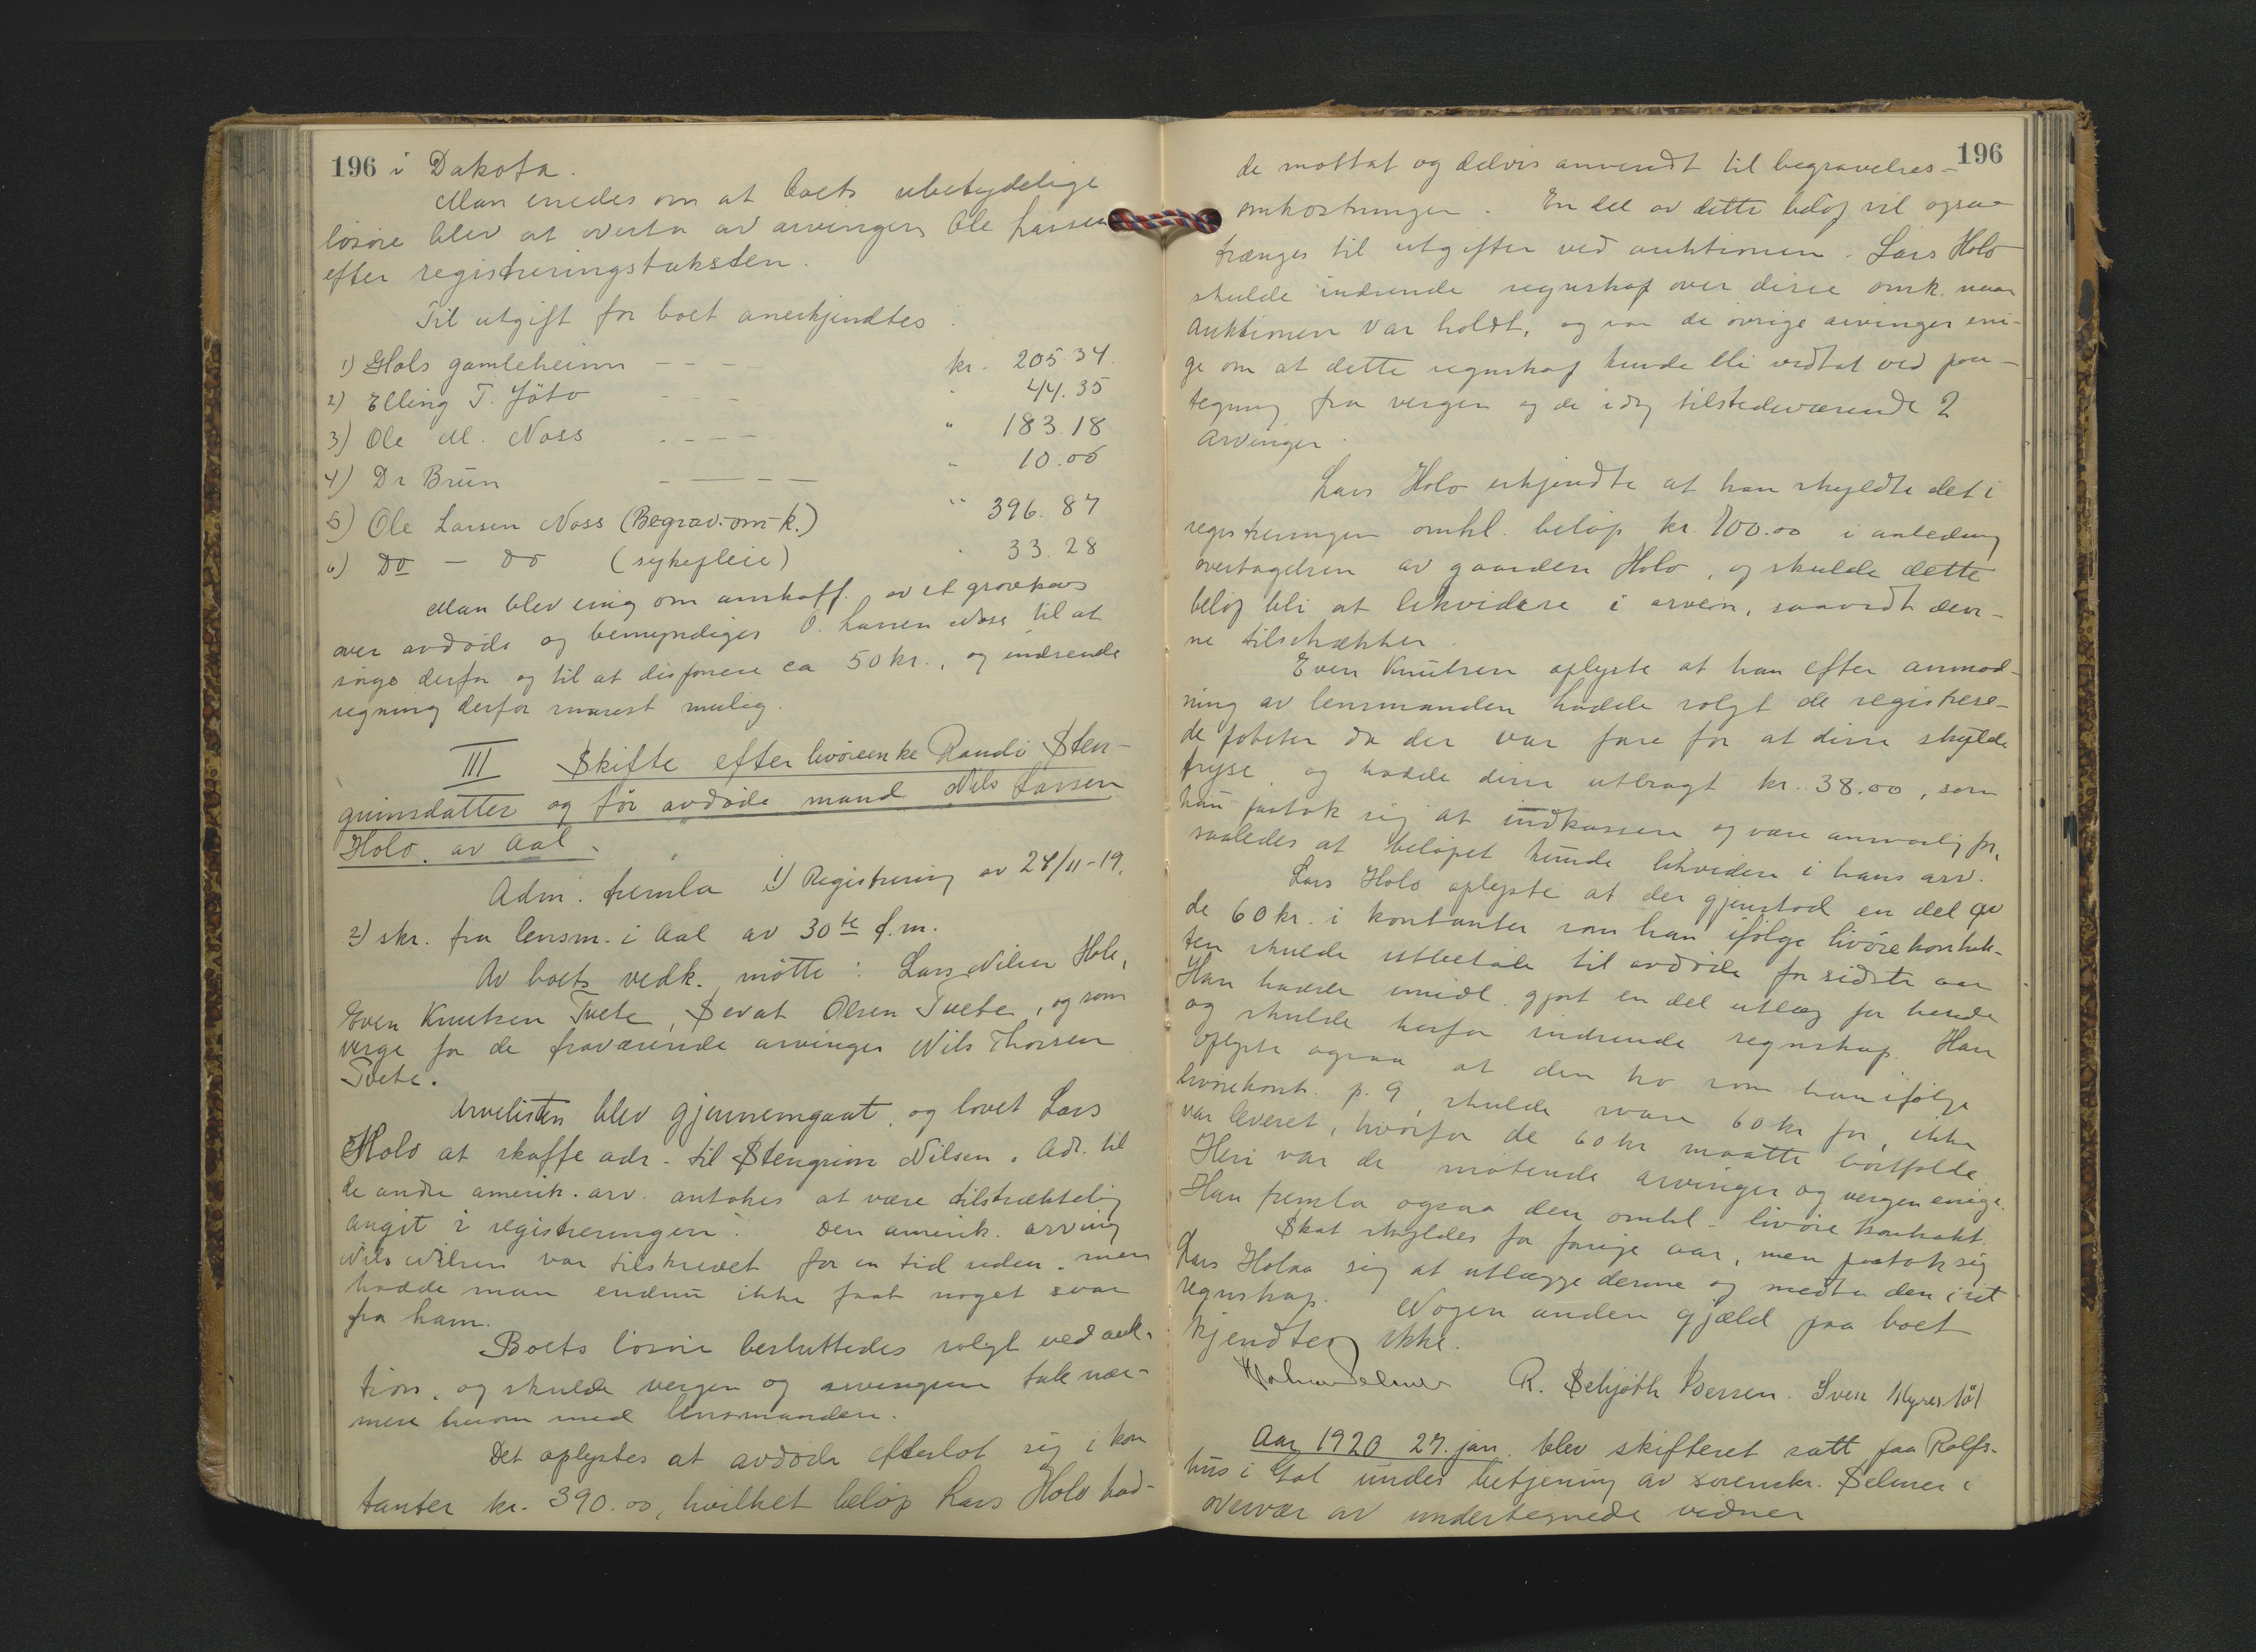 196 i Dakota.
Man enedes om at boets ubetydelige
løsøre blev at overta av arvingen Ole Larsen
efter registreringstaksten.
Til utgift for boet anerkjendtes:
1) Hols gamleheim - - - - kr. 205.34.
2) Elling T. - - - " 44.35
3) Ole M. Noss - - - - " 183.18
4) Dr Brun - - - - " 10.00
5) Ole Larsen Noss (Begrav.-omk.) " 396.87
6) Do - Do (sykepleie) " 33.28
Man blev enig om anskaff. av et gravkors
over avdøde og bemyndiges O. Larsen Noss til at
sørge derfor og til at disponere ca 50 kr., og indsende
regning derfor snarest mulig.
III Skifte efter livøreenke Randi Sten-
grimsdatter og før avdøde mand Nils Larsen
Holo av Aal.
Adm. fremla 1) Registrering av 24/11-19,
2) skr. fra lensm. i Aal av 30te f.m.
Av boets vedk. møtte: Lars Nilsen Holo,
Even Knutsen Tvete, Sevat Olsen Tvete, og som
verge for de fraværende arvinger Nils Thorsen
Tvete.
Arvelisten blev gjennemgaat, og lovet Lars
Holo at skaffe adr. til Stengrim Nilsen. Adr. til
de andre amerik. arv. antokes at være tilstrækkelig
angit i registreringen. Den amerik. arving
Nils Nilsen var tilskrevet for en tid siden, men
hadde man endnu ikke faat noget svar
fra ham.
Boets løsøre besluttedes solgt ved auk-
tion, og skulde vergen og arvingerne tale nær-
mere herom med lensmanden.
Det oplystes at avdøde efterlot sig i kon
tanter kr. 390.00, hvilket beløp Lars Holo had-
196
de mottat og delvis anvendt til begravelses-
omkostninger. En del av dette beløp vil ogsaa
trænges til utgifter ved auktionen. Lars Holo
skulde indsende regnskap over disse omk. naar
auktionen var holdt, og var de øvrige arvinger eni-
ge om at dette regnskap kunde bli vedtat ved paa-
tegning fra vergen og de idag tilstedeværende 2
arvinger.
Lars Holo erkjendte at han skyldte det i
registreringen omhl. beløp kr. 700.00 i anledning
overtagelsen av gaarden Holo, og skulde dette
beløp bli at likvidere i arven, saavidt den-
ne tilstrækker.
Even Knutsen oplyste at han efter anmod-
ning av lensmanden hadde solgt de registrere-
de poteter da der var fare for at disse skulde
fryse, og hadde disse utbragt kr. 38.00, som
han paatok sig at indkassere og være ansvarlig for,
saaledes at beløpet kunde likvidere i hans arv.
Lars Holo oplyste at der gjenstod en del av
de 60 kr. i kontanter som han ifølge livørekontrak-
ten skulde utbetale til avdøde for sidste aar.
Han hadde imidl. gjort en del utlæg for hende
og skulde herfor indsende regnskap. Han
oplyste ogsaa at den ko som han ifølge
livørekont. p. 9, skulde svare 60 kr for, ikke
var leveret, hvorfor de 60 kr maatte bortfalde.
Heri var de møtende arvinger og vergen enige.
Han fremla ogsaa den omhl. livøre kontrakt.
Skat skyldes for forrige aar, men paatok sig
Lars Holoa sig at utlægge denne og medta den i sit
regnskap. Nogen anden gjæld paa boet
kjendtes ikke.
R. Schjøth Iversen. Sven
Aar 1920 27. jan. blev skifteret satt paa Rolfs-
hus i Gol under betjening av sorenskr. Selmer i
overvær av undertegnede vidner